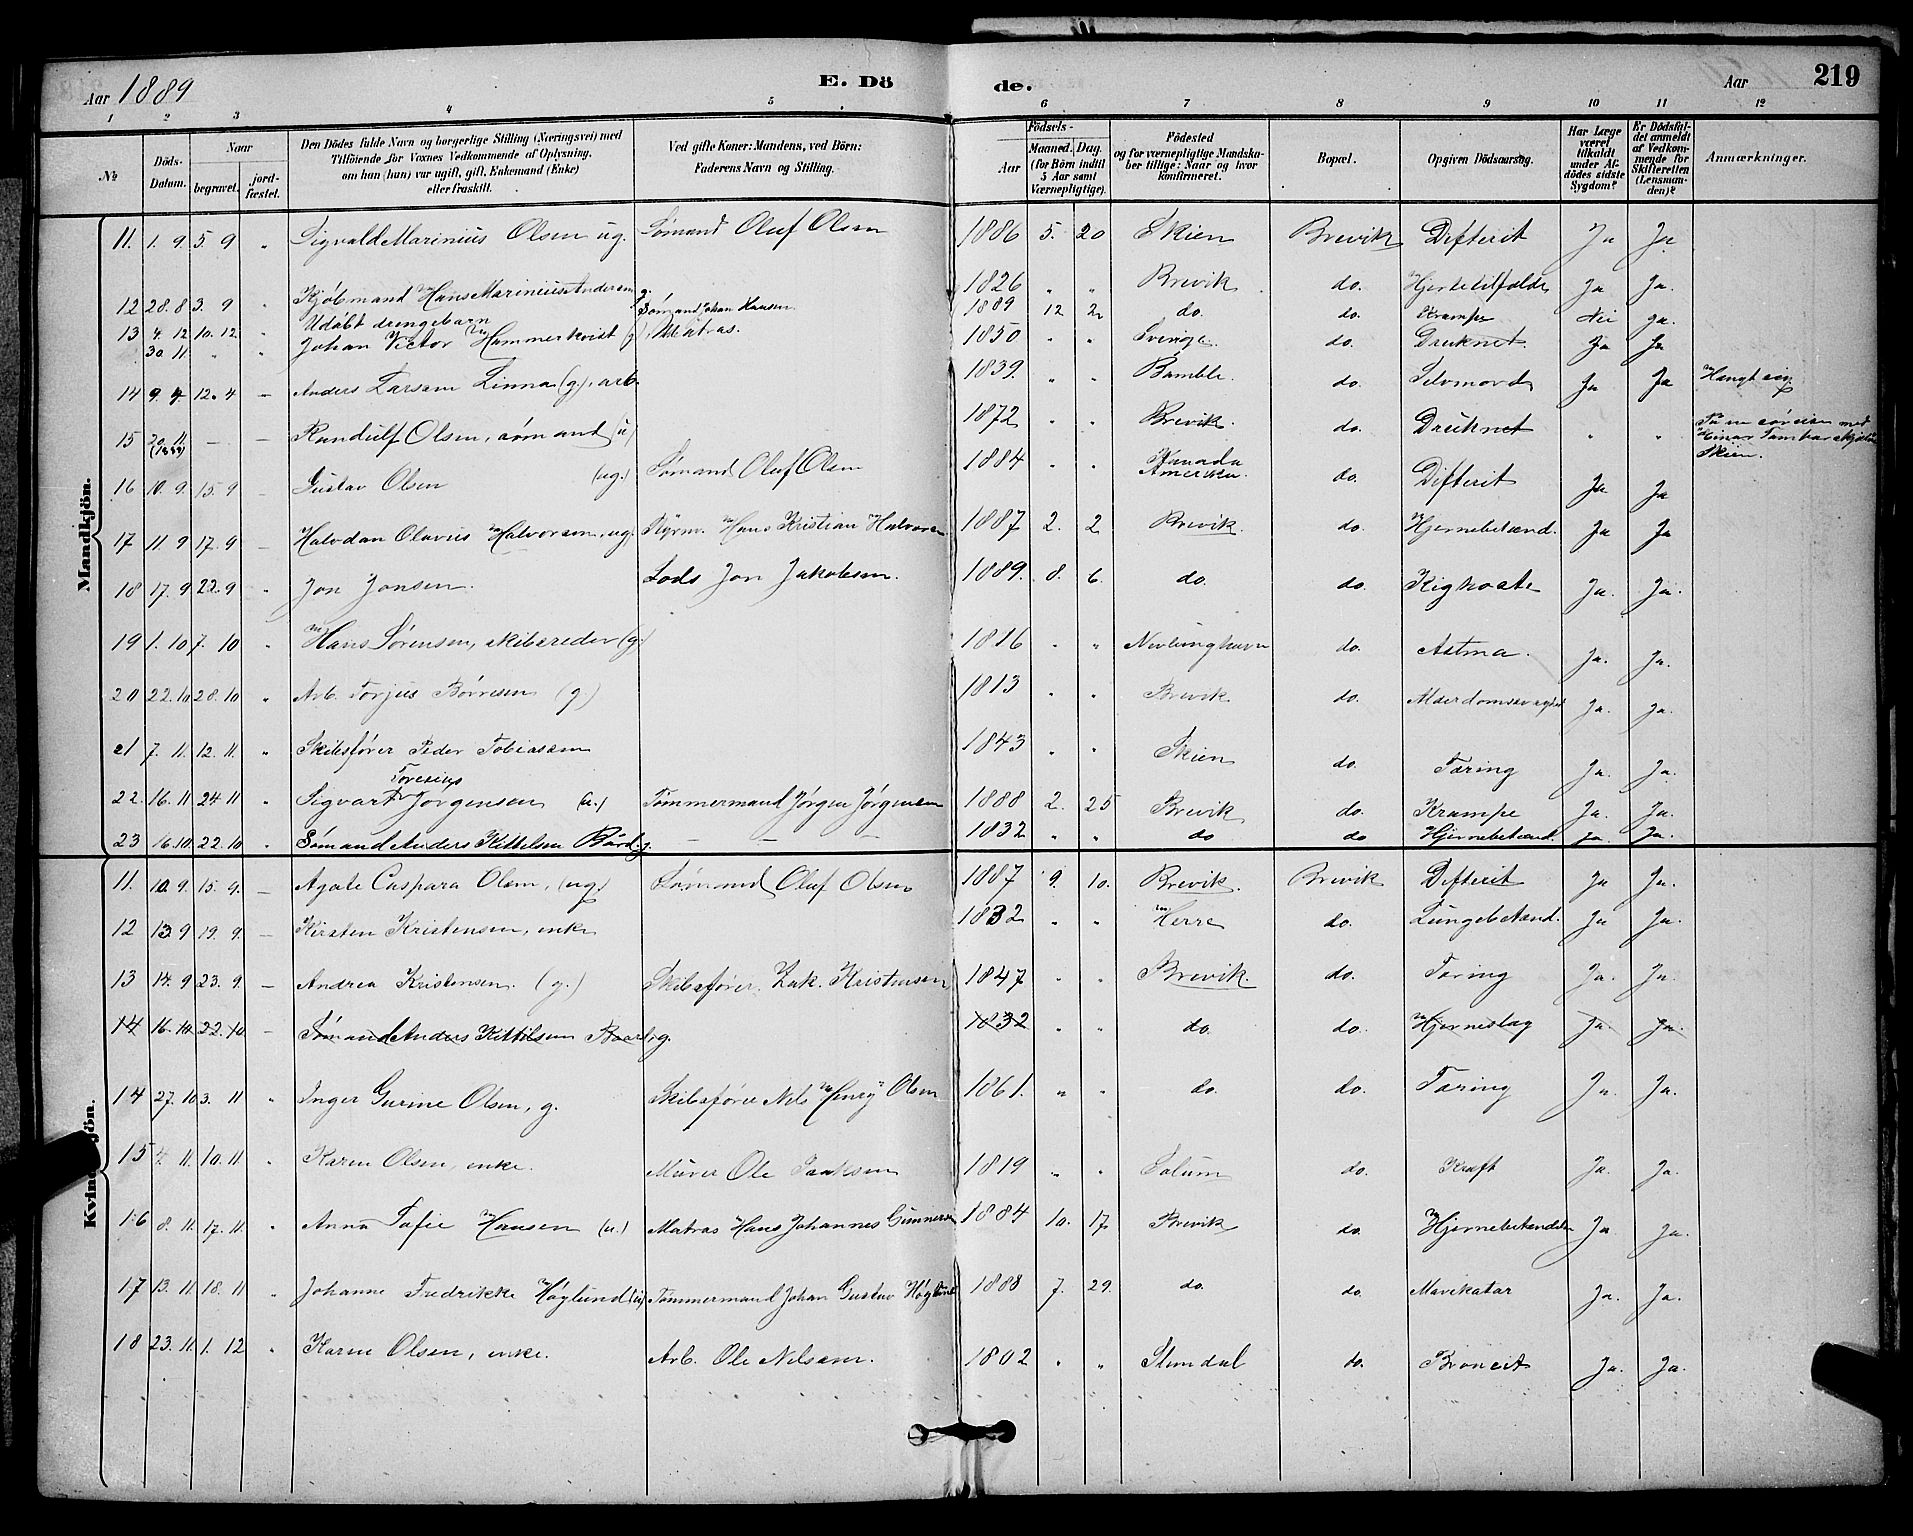 Aar 1889 E. Dö de. Aar 219
1 2 3 4 5 6 7 8 9 10 11 12
No Döds-Datum. Naar begravet. jord-fæstet. Den Dödes fulde Navn og borgerlige Stilling (Næringsvei) med Tilföiende for Voxnes Vedkommende af Oplysning, om han (hun) var ugift, gift, Enkemand (Enke) eller fraskilt. Ved gifte Koner: Mandens, ved Börn: Faderens Navn og Stilling. Födsels- Aar Maaned. Dag. (for Börn indtil 5 Aar samt Værnepligtige). Födested og for værnepligtige Mandskaber tillige: Naar og hvor konfirmeret. Bopæl. Opgiven Dödsaarsag. Har Læge været tilkaldt under Afdödes sidste Sygdom? Er Dödsfaldet anmeldt af Vedkommende for Skifteretten (Lensmanden)? Anmærkninger.
Mandkjön.
11. 1. 9. 5 9 " Sigvald Marinius Olsen ug. Sømand Oluf Olsen 1886 5. 20 Skien Brevik Difterit Ja Ja
12 28. 8 3. 9 " Kjøbmand Hans Marinius Andersen g. 1826 " " Brevik do. Hjertetilfælde Ja Ja.
13 4. 12 10. 12 " Udøbt drengebarn Sømand Johan Hansen 1889 12 2 do. do. Krampe Nei Ja.
30. 11. " " Johan Victor Hammerkvist (g), Matros. 1850 " " Sverige do. Druknet. Ja Ja
14 9. 4. 12. 4 — Anders Larsen Linna (g), arb. 1839. " " Bamble. do. Selvmord Ja Ja Hængt sig.
15 20. 11. (1888) — — Randulf Olsen, sømand (u) 1872 " " Brevik. do. Druknet " " Paa en søreise med
Skien.
16 10. 9. 15. 9 — Gustav Olsen (ug.) Sømand Oluf Olsen 1884 " " Kanada Amerika. do. Difterit Ja Ja
17 11. 9 17. 9 — Halvdan Olavus Halvorsen, ug. Styrm. Hans Kristian Halvorsen 1887 2. 2 Brevik. do. Hjernebetænd. Ja Ja
18 17. 9 22. 9 " Jon Jonsen. Lods Jon Jakobsen. 1889. 8. 6. do. do. Kighoste Ja. Ja.
19 1. 10 7. 10 " Hans Sørensen, skibsreder (g.) 1816 " " Nevlunghavn do. Astma. Ja. Ja.
20 22. 10 28. 10 " Arb. Torjus Børresen (g.) 1813 " " Brevik do. Alderdomssvaghed Ja. Ja.
21 7. 11. 12. 11. " Skibsfører Peder Tobiassen 1843 " " Skien do. Tæring Ja. Ja.
22. 16. 11 24 11 " Sigvart Jørgensen (u.) Tømmermand Jørgen Jørgensen 1888 2. 25 Brevik do. Krampe Ja. Ja.
23 16. 10. 22. 10 " Sømand Anders Kittelsen g. — — — 1832 " " do do Hjernebetænd. Ja. Ja.
Kvindekjön.
11. 10. 9. 15. 9. — Agate Caspara Olsen, (ug.) Sømand Oluf Olsen 1887 9. 10. Brevik. Brevik Difterit Ja Ja.
12 13. 9 19. 9. — Kirsten Kristensen, enke 1832 " " Herre do. Lungebetænd. Ja Ja.
13 14. 9 23. 9. — Andrea Kristensen. (g.) Skibsfører. Zak. Kristensen 1847 " " Brevik. do. Tæring Ja. Ja.
14 16. 10 22. 10 — Sømand Anders Kittilsen g. 1832 " " do. do. Hjerneslag Ja. Ja.
14 27. 10 3. 11 " Inger Gurine Olsen, g. Skibsfører Nils Henry Olsen 1861. " " do. do. Tæring Ja. Ja.
15 4. 11. 10. 11. " Karen Olsen, enke. Murer Ole Isaksen 1819 " " Solum do. Kræft Ja. Ja.
16 8. 11. 17. 11. " Anna Sofie Hansen (u.) Matros Hans Johannes Gunnersen 1884 10. 17 Brevik do. Hjernebetændelse Ja Ja.
17 13. 11. 18. 11 " Johanne Fredrikke Høglund (u) Tømmermand Johan Gustav Høglund 1888 7. 29. do. do. Mavekatar Ja. Ja.
18 23. 11. 1. 12 " Karen Olsen, enke. Arb. Ole Nilssen. 1802 " " Slemdal do. Broncit Ja. Ja.